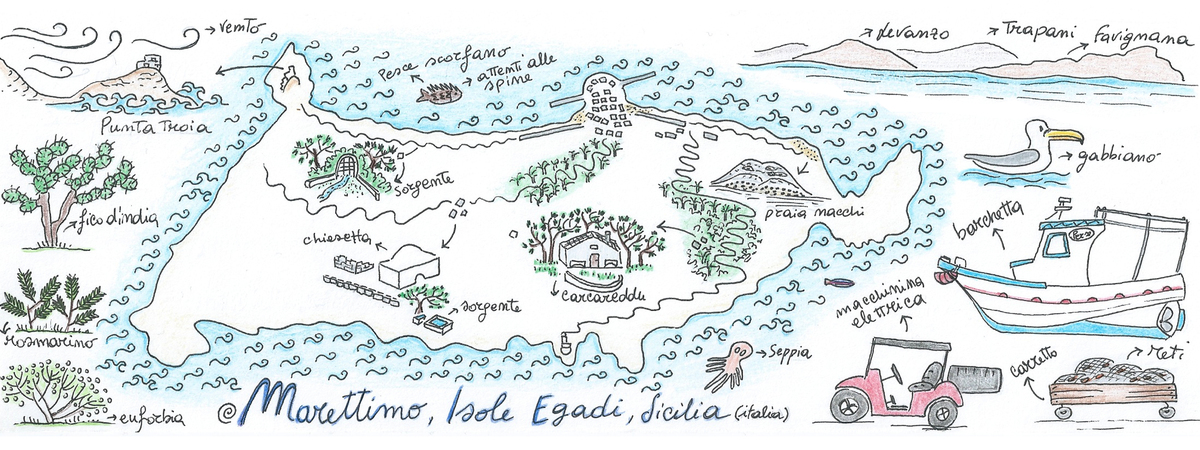 vento
Punta Troia
Pesce scorfano
attenti alle
spine
Levanzo
Trapani
Favignana
gabbiano
fico d'india
sorgente
chiesetta
praia macchi
barchetta
macchinina
elettrica
carcareddu
sorgente
rosmarino
Seppia
carretto
reti
euforbia
@Marettimo, Isole Egadi, Sicilia (italia)